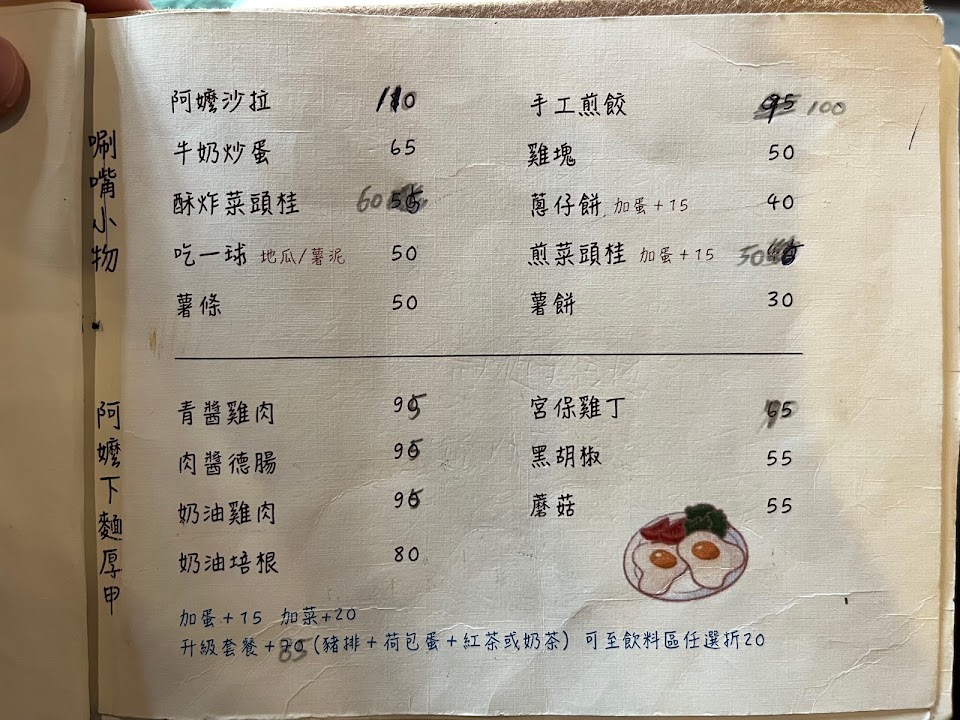 唰嘴小物
阿嬤沙拉 110
牛奶炒蛋 65
酥炸菜頭桂 60
吃一球 地瓜/薯泥 50
薯條 50
手工煎餃 95 100
雞塊 50
蔥仔餅 加蛋+15 40
煎菜頭桂 加蛋+15 50
薯餅 30
阿嬤下麵厚甲
青醬雞肉 95
肉醬德腸 95
奶油雞肉 95
奶油培根 80
宮保雞丁 65
黑胡椒 55
蘑菇 55
加蛋+15 加菜+20
升級套餐+85 (豬排+荷包蛋+紅茶或奶茶) 可至飲料區任選折20